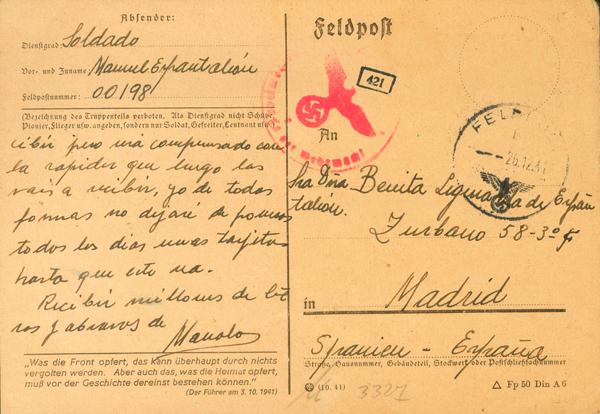 Absender:
Dienstgrad: Soldado
Vor- und Zuname: Manuel Españtaleón
Feldpostnummer: 00198
(Bezeichnung des Truppenteils verboten. Als Dienstgrad nicht Schütze
Pionier, Flieger usw. angeben, sondern nur Soldat, Gefreiter, Leutnant usw.
cibir pero irá compensado con
la rapidez que luego las
vais a recibir, yo de todas
formas no dejaré de poneros
todos los dias unas tarjetas
hasta que esto
Recibir millones de be
sos y abrazos de
Manolo
„Was die Front opfert, das kann überhaupt durch nichts
vergolten werden. Aber auch das, was die Heimat opfert,
muß vor der Geschichte dereinst bestehen können."
(Der Führer am 3. 10. 1941)
Feldpost
421
der Wehrmacht
An
FELDPOST
26.12.41
Sra Dña Benita de Españ
taleon.
Zurbano 58-3º
in Madrid
Spanien - España
Straße, Hausnummer, Gebäudeteil, Stockwerk oder Postschließfachnummer
(10. 41)
3327
Fp 50 Din A 6